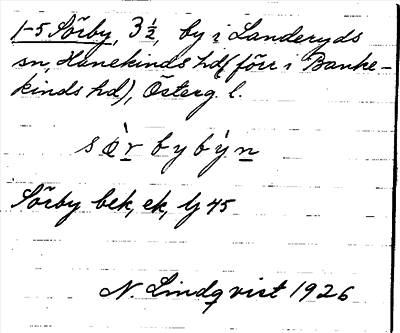 1-5 Sörby, 3 ½, by i Landeryds
sn, Hanekinds hd (förr i Banke-
kinds hd), Österg. l.
sœ̀r bybýn
Sörby bek, ek, lj 45
N. Lindqvist 1926